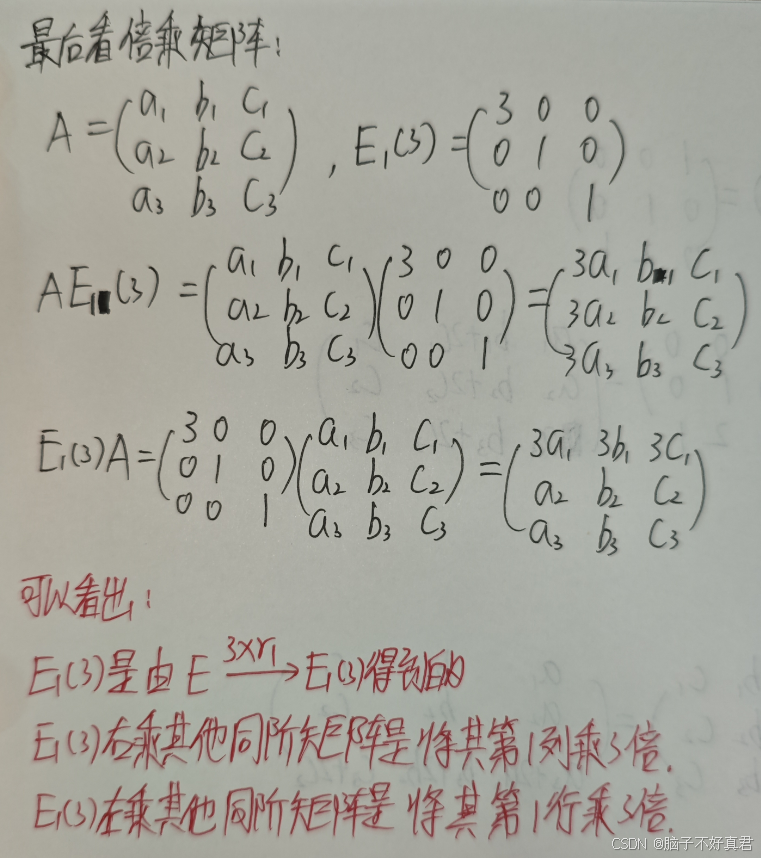 最后看倍乘矩阵:
A = (a₁ b₁ c₁
a₂ b₂ c₂
a₃ b₃ c₃) , E₁(3) = (3 0 0
0 1 0
0 0 1)
AE₁(3) = (a₁ b₁ c₁
a₂ b₂ c₂
a₃ b₃ c₃)(3 0 0
0 1 0
0 0 1) = (3a₁ b₁ c₁
3a₂ b₂ c₂
3a₃ b₃ c₃)
E₁(3)A = (3 0 0
0 1 0
0 0 1)(a₁ b₁ c₁
a₂ b₂ c₂
a₃ b₃ c₃) = (3a₁ 3b₁ 3c₁
a₂ b₂ c₂
a₃ b₃ c₃)
可以看出:
E₁(3)是由E —3×r₁→ E₁(3)得到的
E₁(3)右乘其他同阶矩阵是将其第1列乘3倍.
E₁(3)左乘其他同阶矩阵是将其第1行乘3倍.
CSDN @脑子不好真君